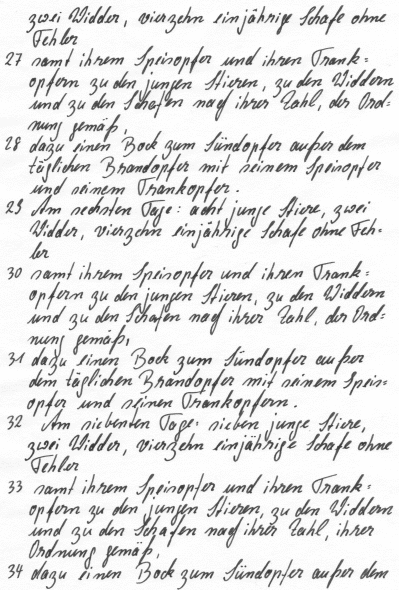 zwei Widder, vierzehn einjährige Schafe ohne
Fehler
27 samt ihrem Speisopfer und ihren Trank=
opfern zu den jungen Stieren, zu den Widdern
und zu den Schafen nach ihrer Zahl, der Ord=
nung gemäß,
28 dazu einen Bock zum Sündopfer außer dem
täglichen Brandopfer mit seinem Speisopfer
und seinem Trankopfer.
29 Am sechsten Tage: acht junge Stiere, zwei
Widder, vierzehn einjährige Schafe ohne Feh=
ler
30 samt ihrem Speisopfer und ihren Trank=
opfern zu den jungen Stieren, zu den Widdern
und zu den Schafen nach ihrer Zahl, der Ord=
nung gemäß,
31 dazu einen Bock zum Sündopfer außer
dem täglichen Brandopfer mit seinem Speis=
opfer und seinen Trankopfern.
32 Am siebenten Tage: sieben junge Stiere,
zwei Widder, vierzehn einjährige Schafe ohne
Fehler
33 samt ihrem Speisopfer und ihren Trank=
opfern zu den jungen Stieren, zu den Widdern
und zu den Schafen nach ihrer Zahl, ihrer
Ordnung gemäß,
34 dazu einen Bock zum Sündopfer außer dem